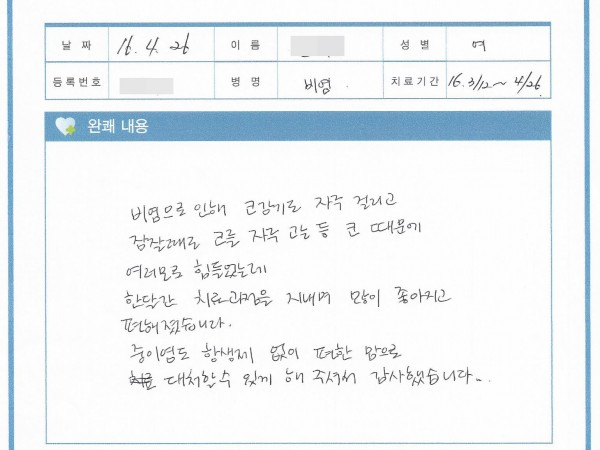 날 짜 16. 4. 26 이 름 성 별 여
등록번호 병 명 비염. 치료기간 16. 3/12 ~ 4/26.
완쾌 내용
비염으로 인해 코감기도 자주 걸리고
잠잘때도 코를 자주 고는 등 코 때문에
여러모로 힘들었는데
한달간 치료과정을 지내며 많이 좋아지고
편해졌습니다.
중이염도 항생제 없이 편한 맘으로
대처할수 있게 해 주셔서 감사했습니다..